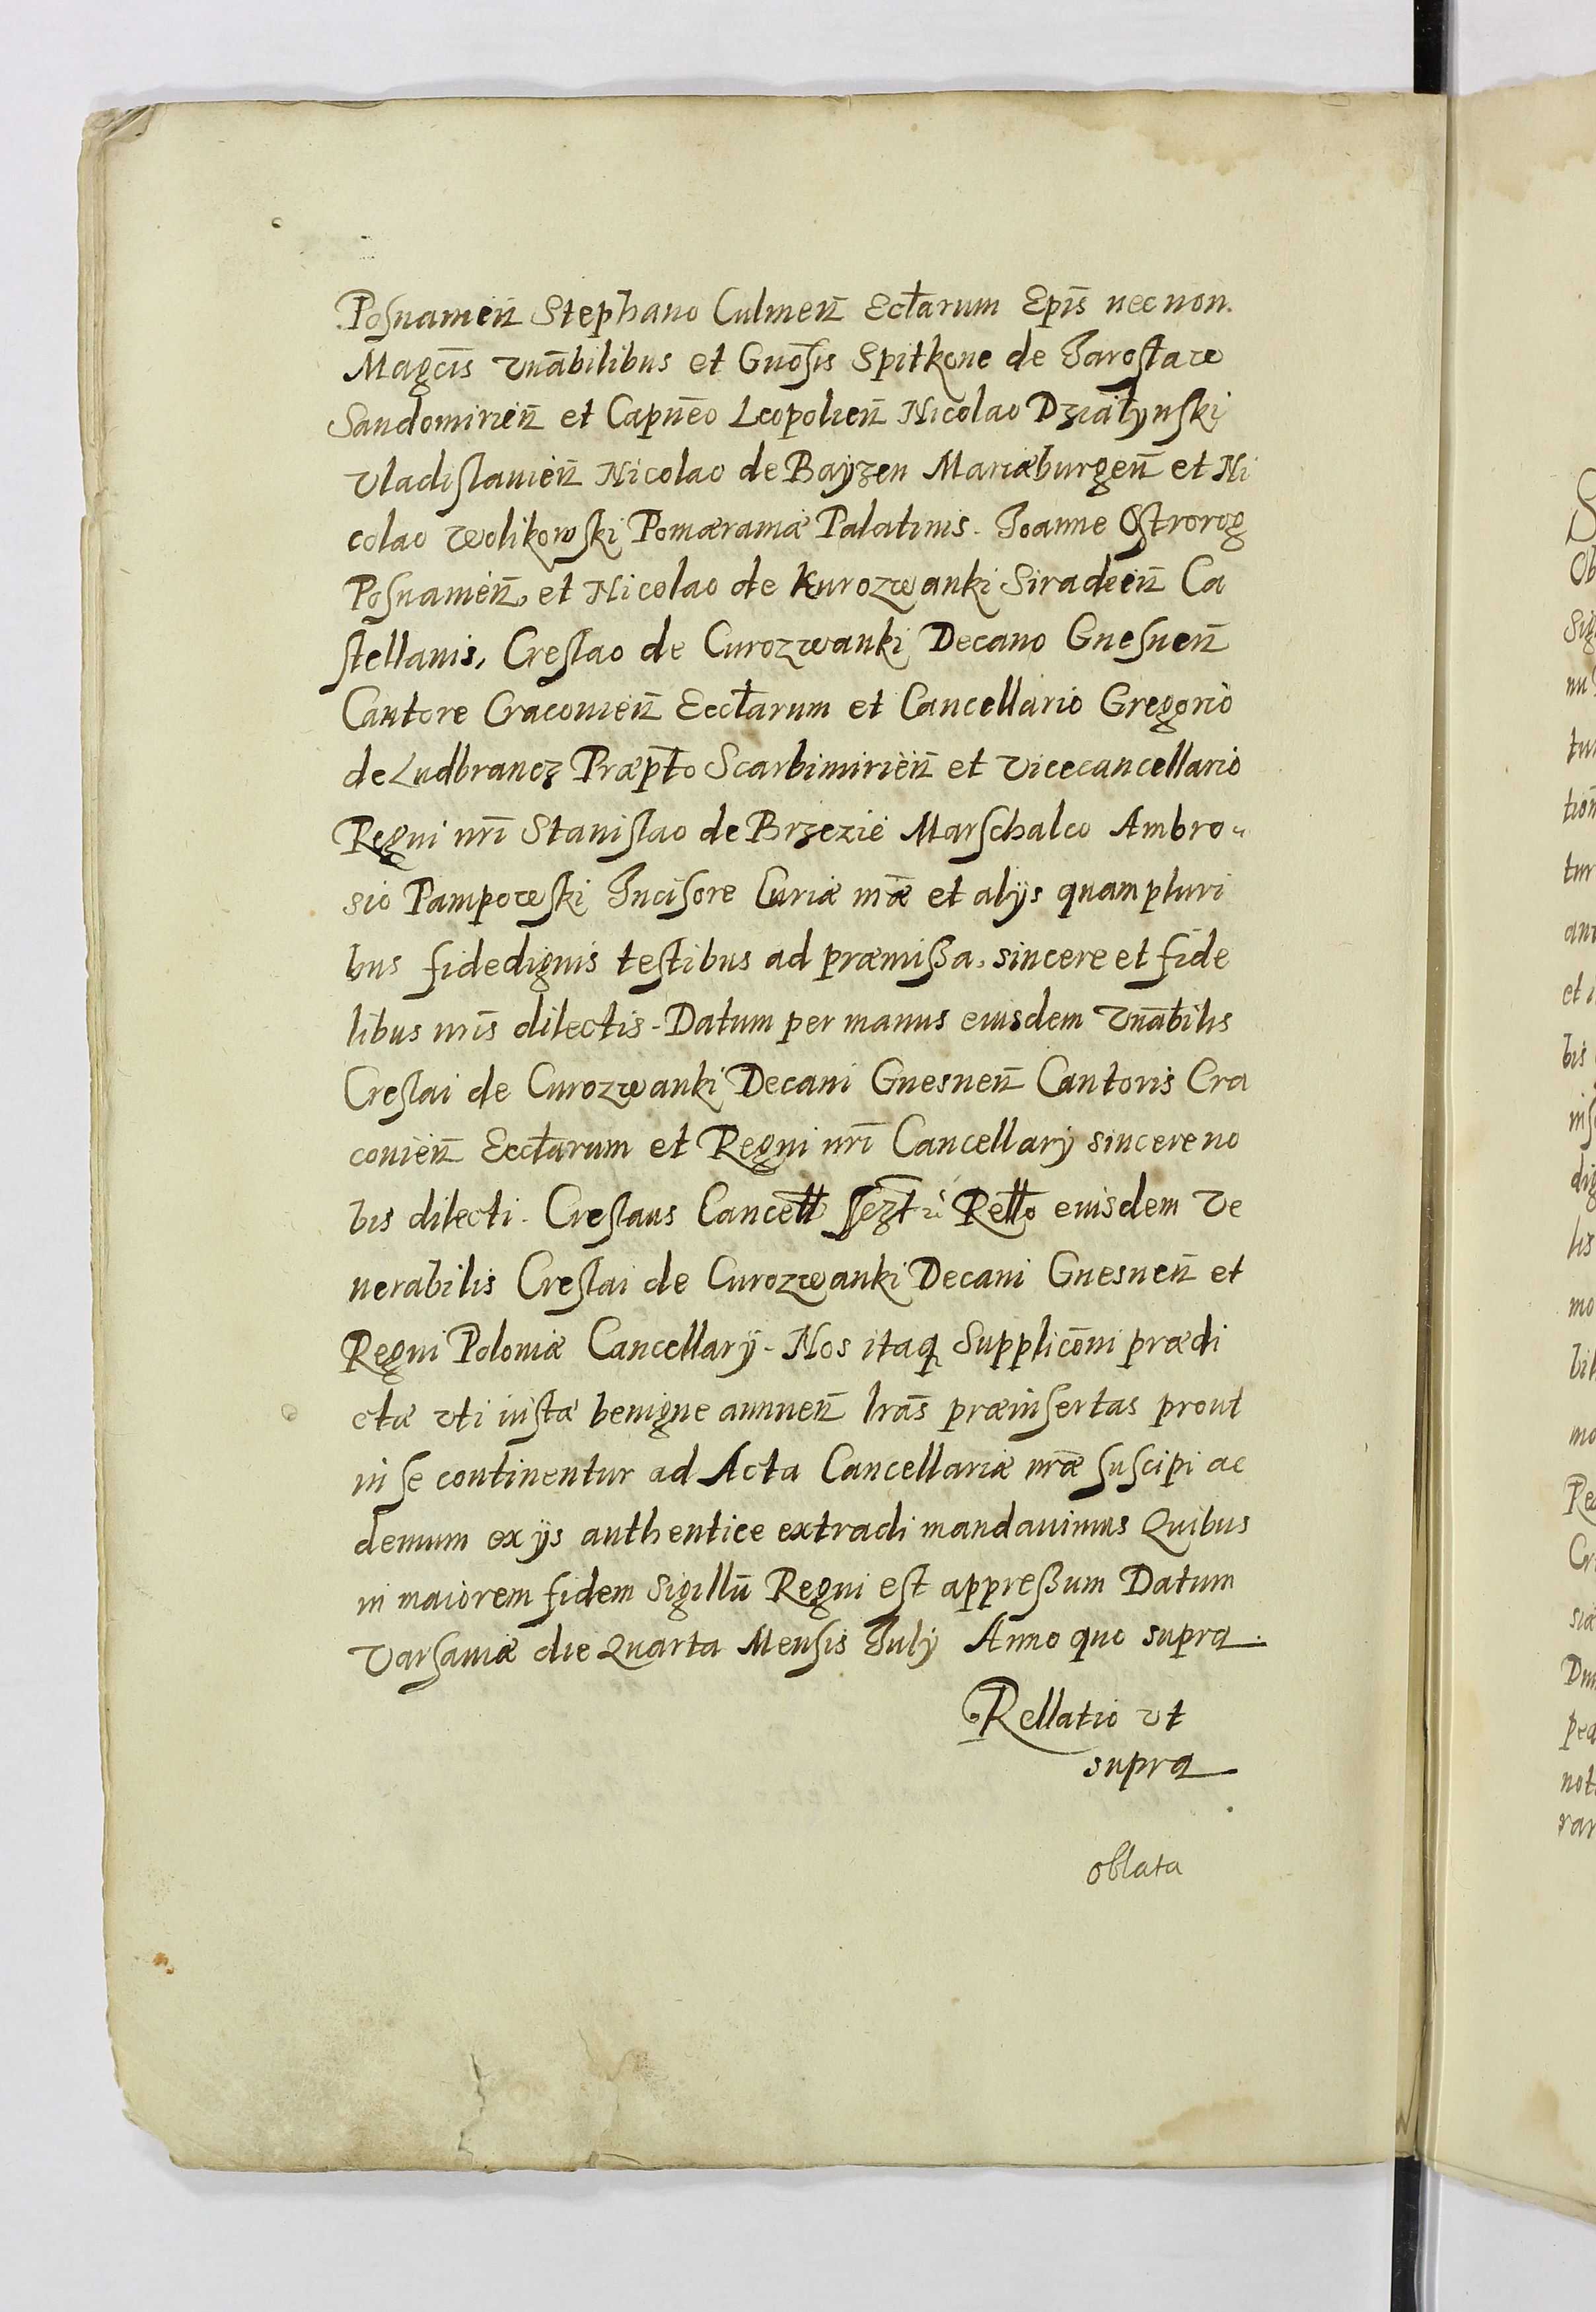 Posnamen̄ Stephano Culmen̄ Ecc̄łarum Ep̄is nec non
Magcīs Vnābilibus et Gnōsis Spitkone de Jarosław
Sandomirien̄ et Capnēo Leopolien̄ Nicolao Działynski
Vladislauien̄ Nicolao de Bayzen Mariæburgen̄ et Ni
colao Wolikowski Pomæraniæ Palatinis. Joanne Ostrorog
Posnanien̄, et Nicolao de Kurozwanki Siradien̄ Ca
stellanis, Creslao de Curozwanki Decano Gnesnen̄
Cantore Cracouien̄ Eccłarum et Cancellario Gregorio
de Ludbrancz Præpt̄o Scarbimirien̄ et Vicecancellario
Regni nr̄i Stanislao de Brzezie Marschalco Ambro
sio Pampowski Incisore Curiæ nr̄æ et alijs quampluri
bus fidedignis testibus ad præmissa, sincere et fide
libus nr̄is dilectis. Datum per manus eiusdem Vnābilis
Creslai de Curozwanki Decani Gnesnen̄ Cantoris Cra
couien̄ Eccłarum et Regni nr̄i Cancellarij sincere no
bis dilecti. Creslaus Cancełł Rełło eiusdem Ve
nerabilis Creslai de Curozwanki Decani Gnesnen̄ et
Regni Poloniæ Cancellarij. Nos itaq Supplicōni prædi
ctæ vti iustæ benigne annuen̄ lrās præinsertas prout
in se continentur ad Acta Cancellariæ nr̄æ suscipi ac
demum ex ijs authentice extradi mandauimus Quibus
in maiorem fidem Sigillū Regni est appressum Datum
Varsauiæ die Quarta Mensis July Anno quo supra.
Rellatio vt
supra
oblata